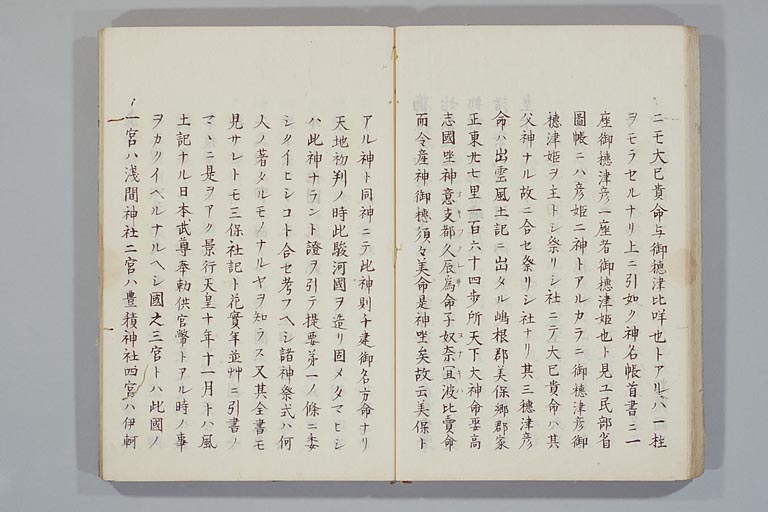 ニモ大己貴命与御穂津比咩也トアルハ一柱
ヲモラセルナリ上ニ引如ク神名帳首書ニ一
座御穂津彦一座者御穂津姫也ト見エ民部省
圖帳ニハ彦姫二神トアルカラニ御穂津彦御
穂津姫ヲ主トシ祭リシ社ニテ大己貴命ハ其
父神ナル故ニ合セ祭リシ社ナリ其三穂津彦
命ハ出雲風土記ニ出タル嶋根郡美保郷郡家
正東廿七里一百六十四歩所天下大神命娶高
志國坐神意支都久辰為命子奴奈宜波比賣命
而令産神御穂須々美命是神坐矣故云美保ト
アル神ト同神ニテ此神則チ建御名方命ナリ
天地初判ノ時此駿河國ヲ造リ固メタマヒシ
ハ此神ナラント證ヲ引テ提要第一ノ條ニ委
シクイヒシコト合セ考フヘシ諸神祭式ハ何
人ノ著タルモノナルヤヲ知ラス又其全書モ
見サレトモ三保社記ト花實年並艸ニ引書ノ
マヽニ是ヲアク景行天皇十年十一月トハ風
土記ナル日本武尊奉勅供官幣トアル時ノ事
ヲカクイヘルナルヘシ國之三宮トハ此國ノ
一宮ハ浅間神社二宮ハ豊積神社四宮ハ伊軻